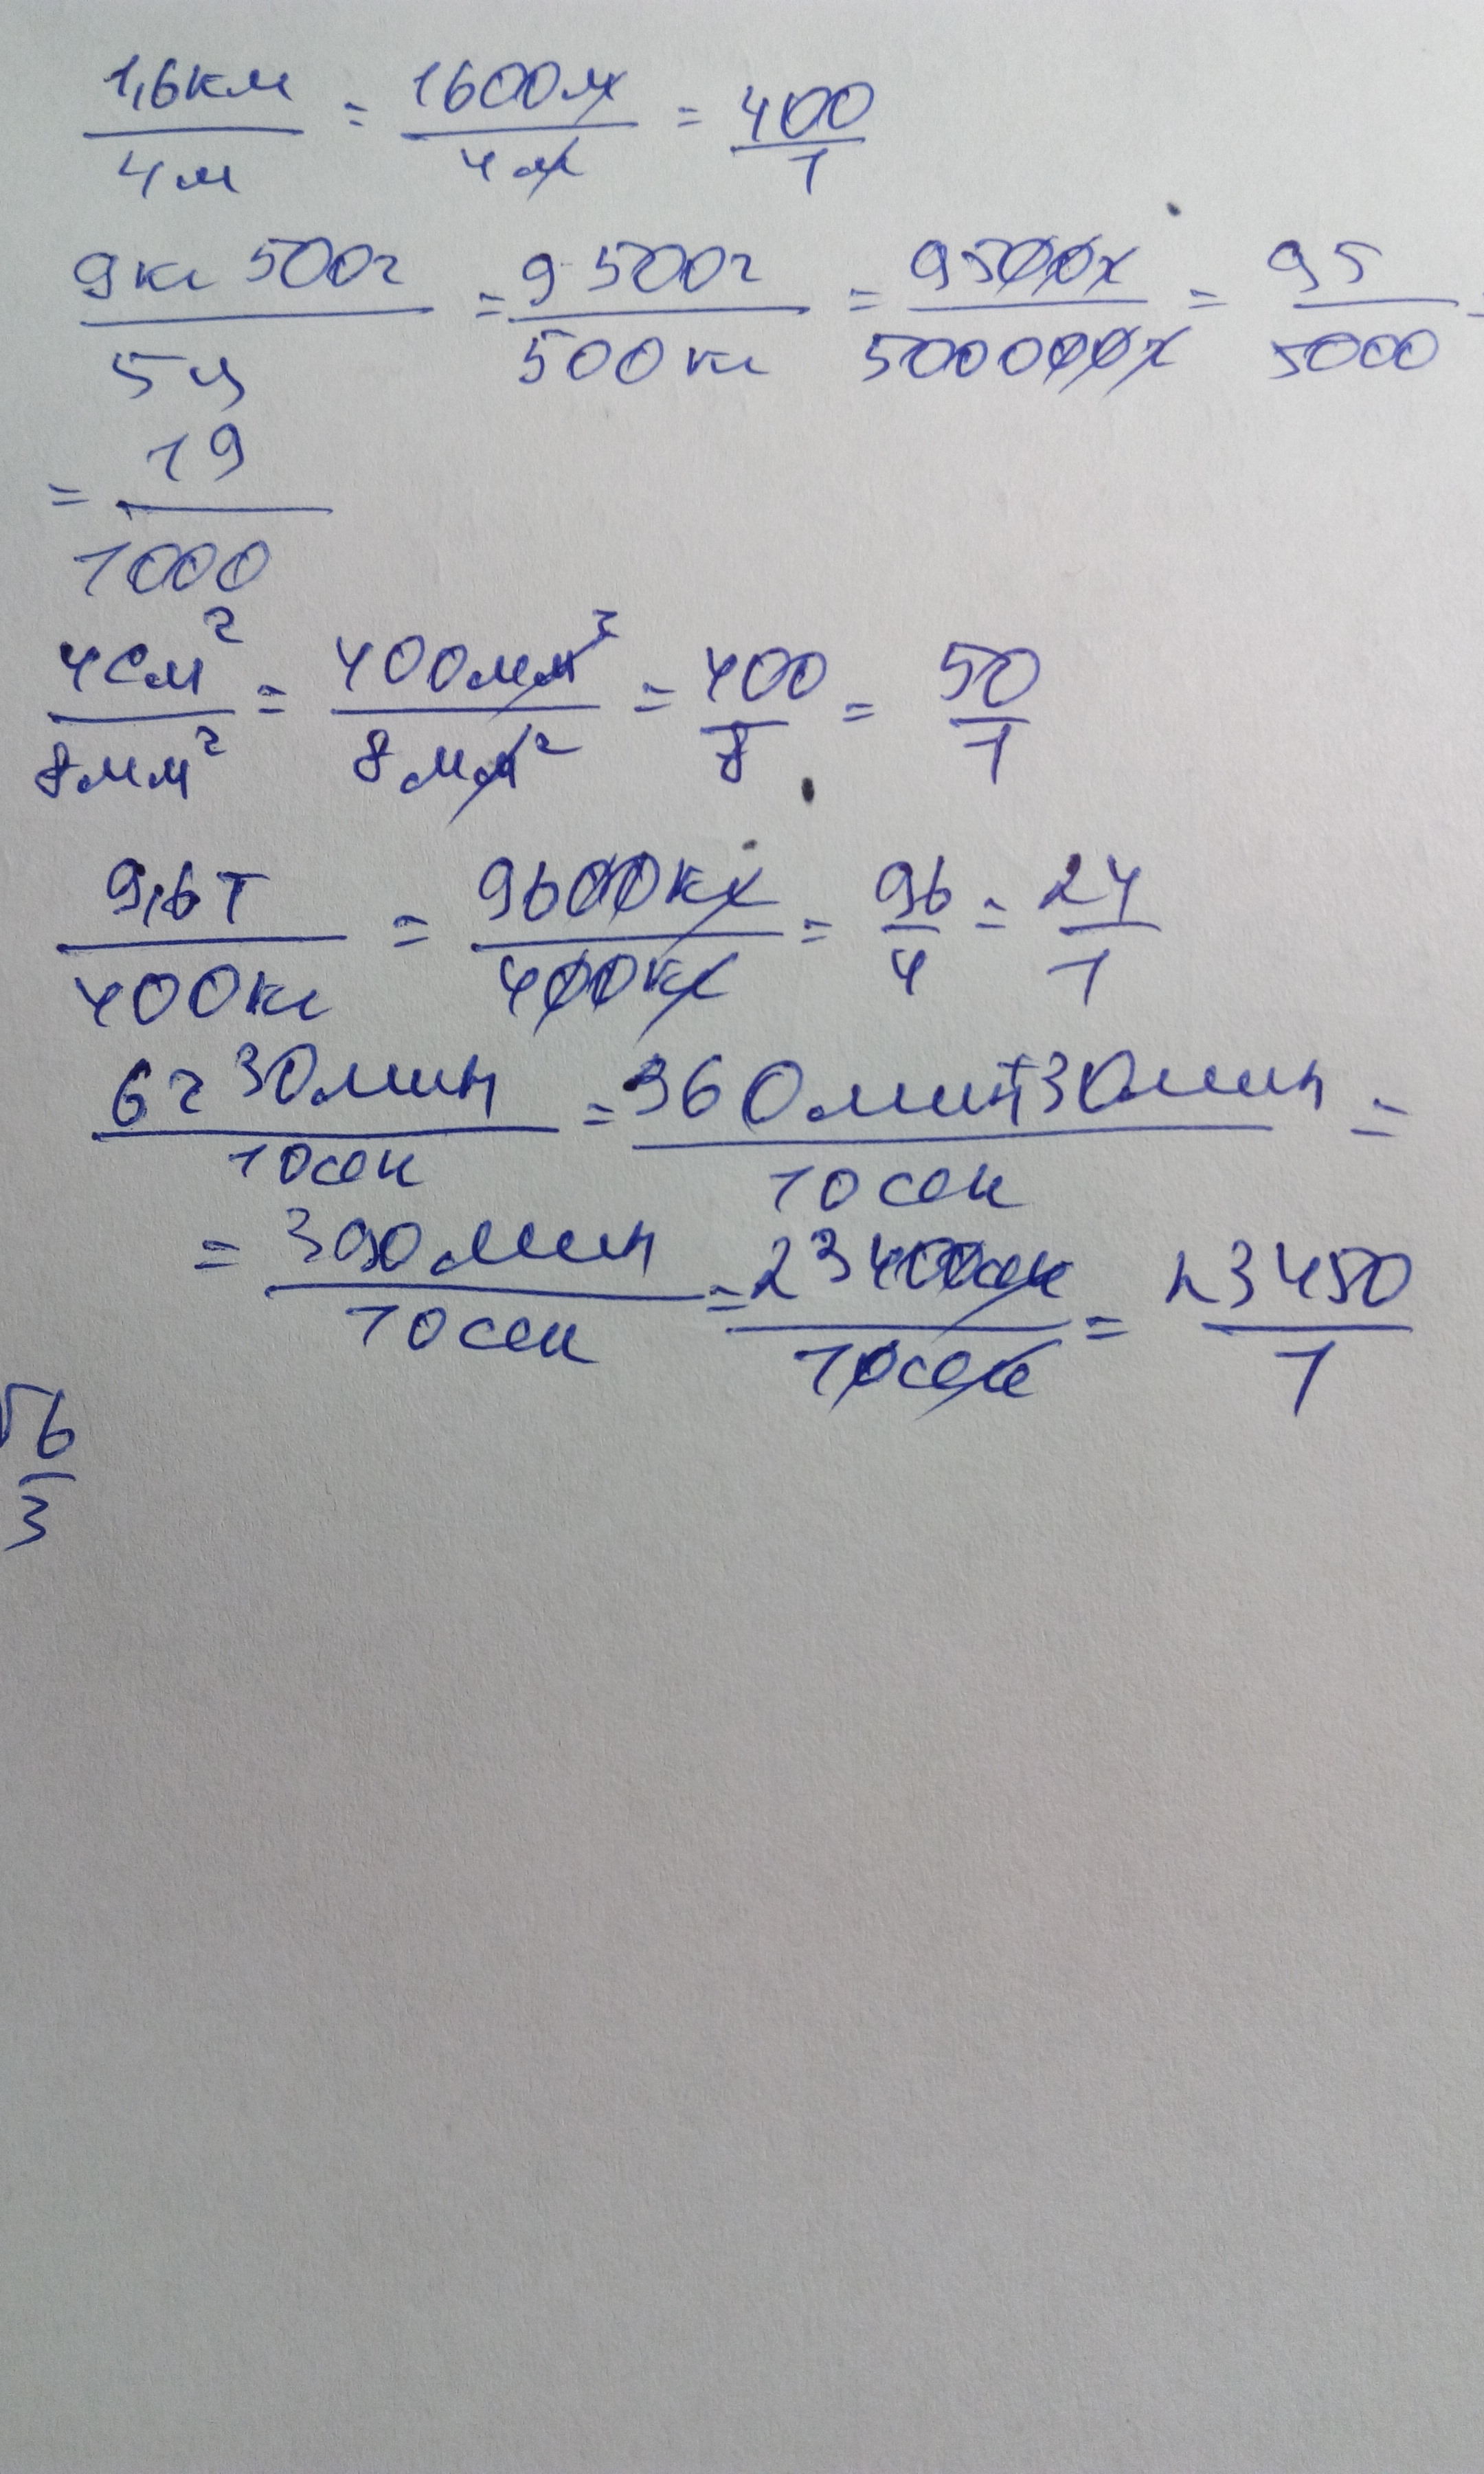 1,6км/4м = 1600м/4м = 400/1
9кг 500г/5ц = 9500г/500кг = 9500г/500000г = 95/5000 =
= 19/1000
4см²/8мм² = 400мм²/8мм² = 400/8 = 50/1
9,6т/400кг = 9600кг/400кг = 96/4 = 24/1
6ч 30мин/10сек = 360мин+30мин/10сек =
= 390мин/10сек = 23400сек/10сек = 23450/1
56/3